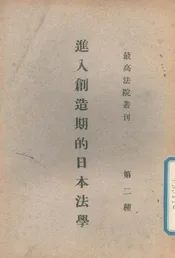 最高法院叢刊 第二種
進入創造期的日本法學